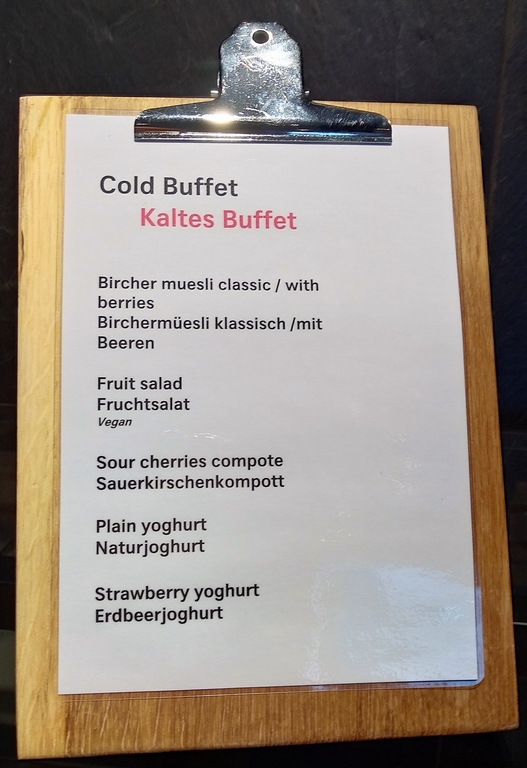 Cold Buffet
Kaltes Buffet
Bircher muesli classic / with
berries
Birchermüesli klassisch /mit
Beeren
Fruit salad
Fruchtsalat
Vegan
Sour cherries compote
Sauerkirschenkompott
Plain yoghurt
Naturjoghurt
Strawberry yoghurt
Erdbeerjoghurt